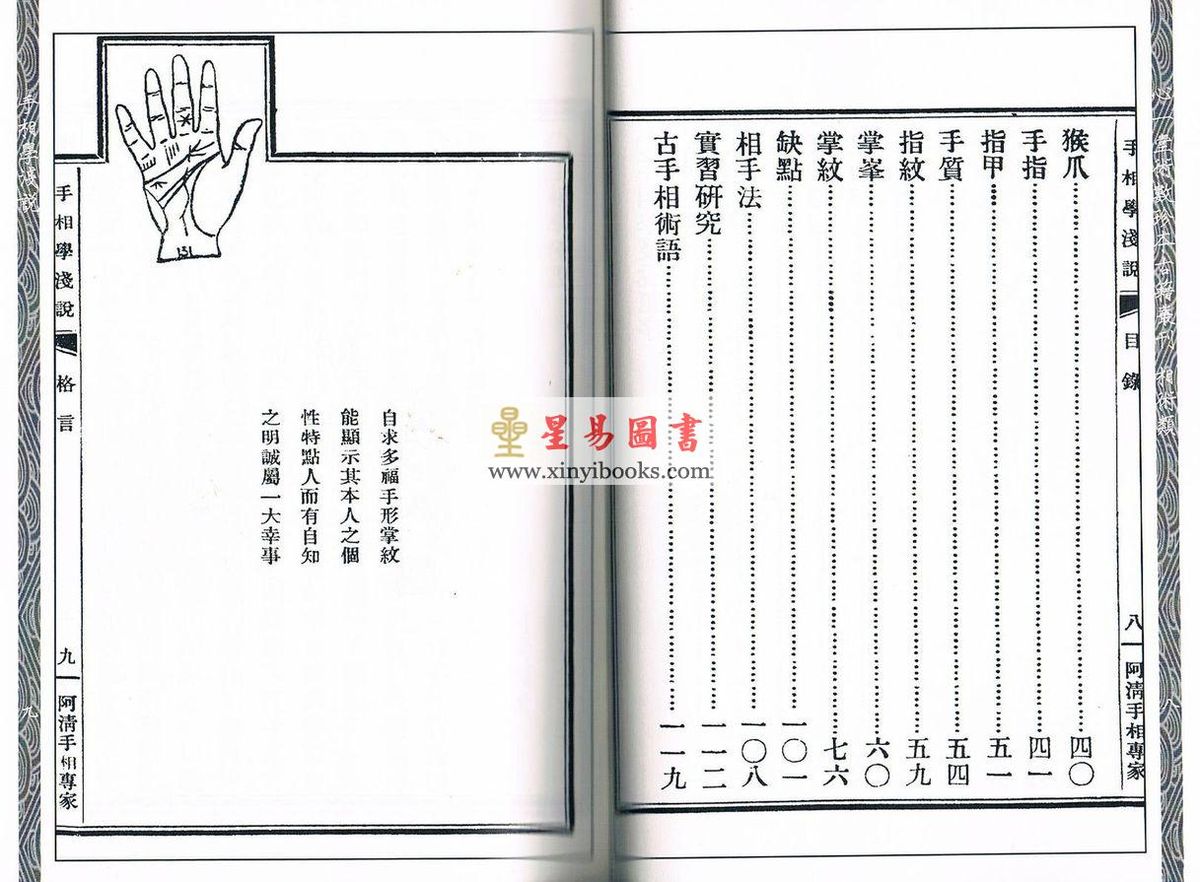 心一堂術數珍本古籍叢刊 相術類
八
手相學淺說
目錄
八
阿清手相專家
猴爪⋯⋯四〇
手指⋯⋯四一
指甲⋯⋯五一
手質⋯⋯五四
指紋⋯⋯五九
掌峯⋯⋯六〇
掌紋⋯⋯七六
缺點⋯⋯一〇一
相手法⋯⋯一〇八
實習研究⋯⋯一一二
古手相術語⋯⋯一一九
星易圖書
www.xinyibooks.com
自求多福手形掌紋
能顯示其本人之個
性特點人而有自知
之明誠屬一大幸事
手相學淺說
格言
九
阿清手相專家
手相學淺說
九